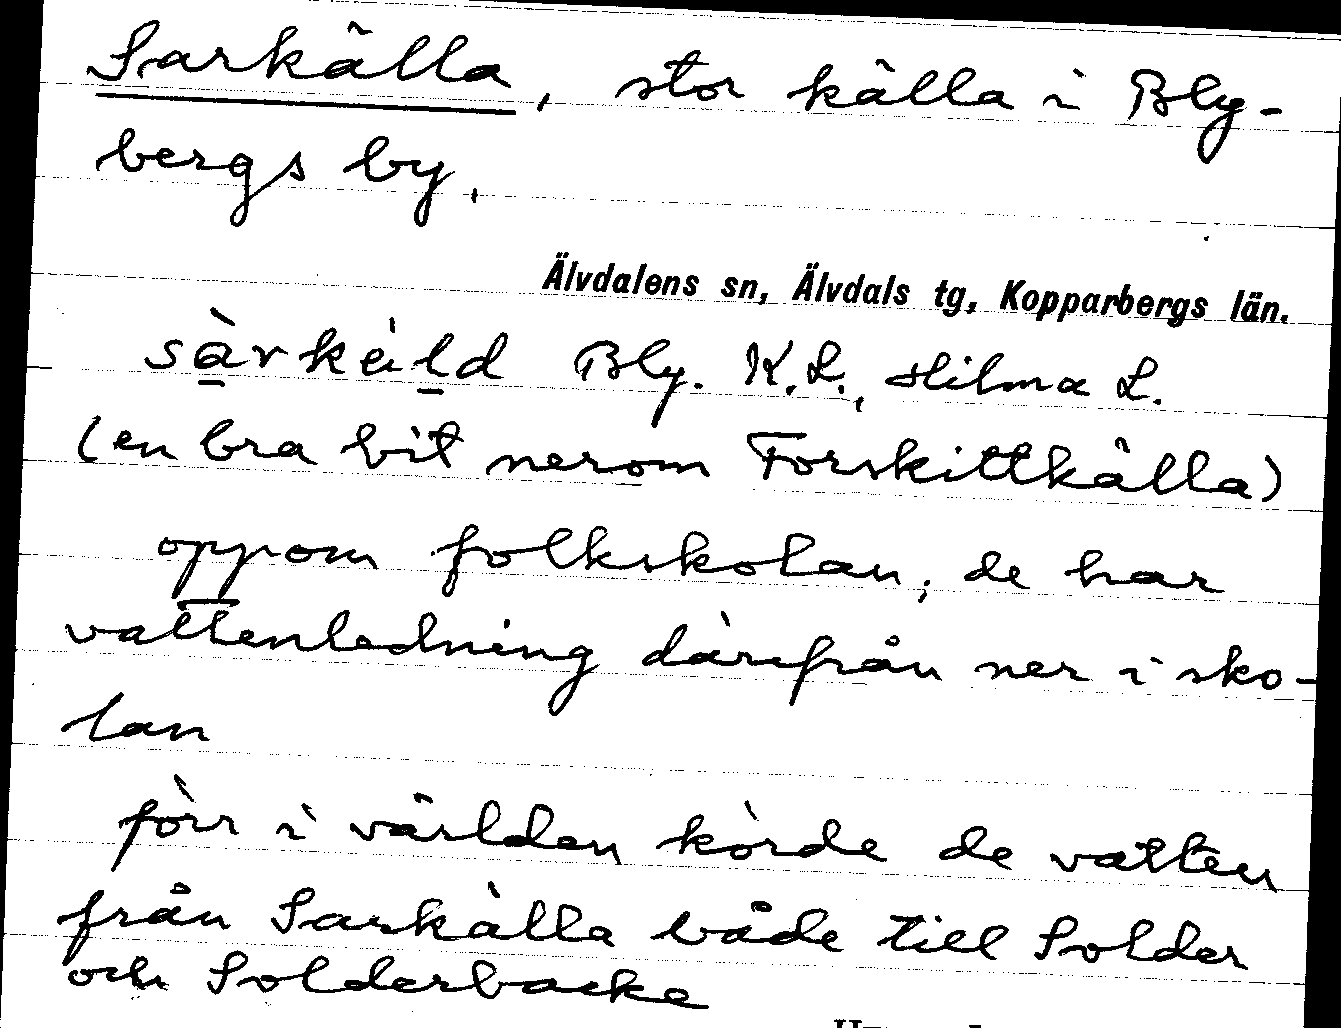 Sarkälla, stor källa i Bly-
bergs by.
Älvdalens sn, Älvdals tg, Kopparbergs län.
sàrkèild Bly. K.L., Hilma L.
(en bra bit nerom Forskittkälla)
oppom folkskolan, de har
vattenledning därifrån ner i sko-
lan
förr i världen körde de vatten
från Sarkälla både till Solder
och Solderbacke